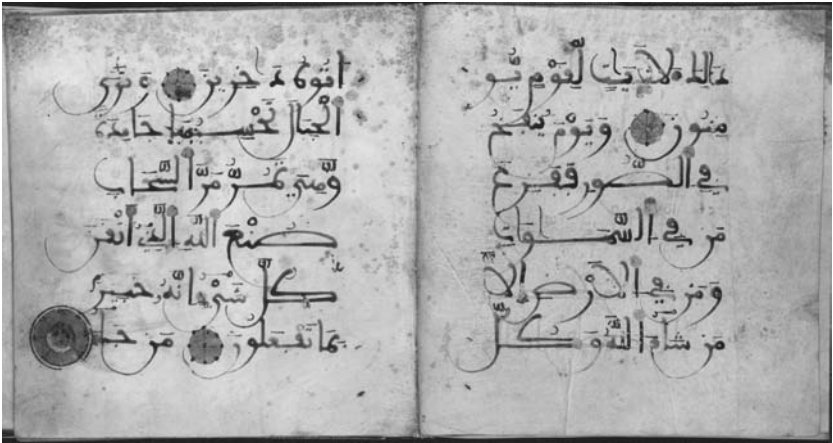 ذَٰلِكَ لَآيَٰتٍ لِّقَوْمٍ يُو
مِنُونَ وَيَوْمَ يُنفَخُ
فِي الصُّورِ فَفَزِعَ
مَن فِي السَّمَٰوَٰتِ
وَمَن فِي الْأَرْضِ إِلَّا
مَن شَاءَ اللَّهُ وَكُلٌّ
أَتَوْهُ دَٰخِرِينَ وَتَرَى
الْجِبَالَ تَحْسِبُهَا جَامِدَةً
وَّهِيَ تَمُرُّ مَرَّ السَّحَابِ
صُنْعَ اللَّهِ الَّذِي أَتْقَنَ
كُلَّ شَيْءٍ إِنَّهُ خَبِيرٌ
بِمَا تَفْعَلُونَ مَن جَاءَ